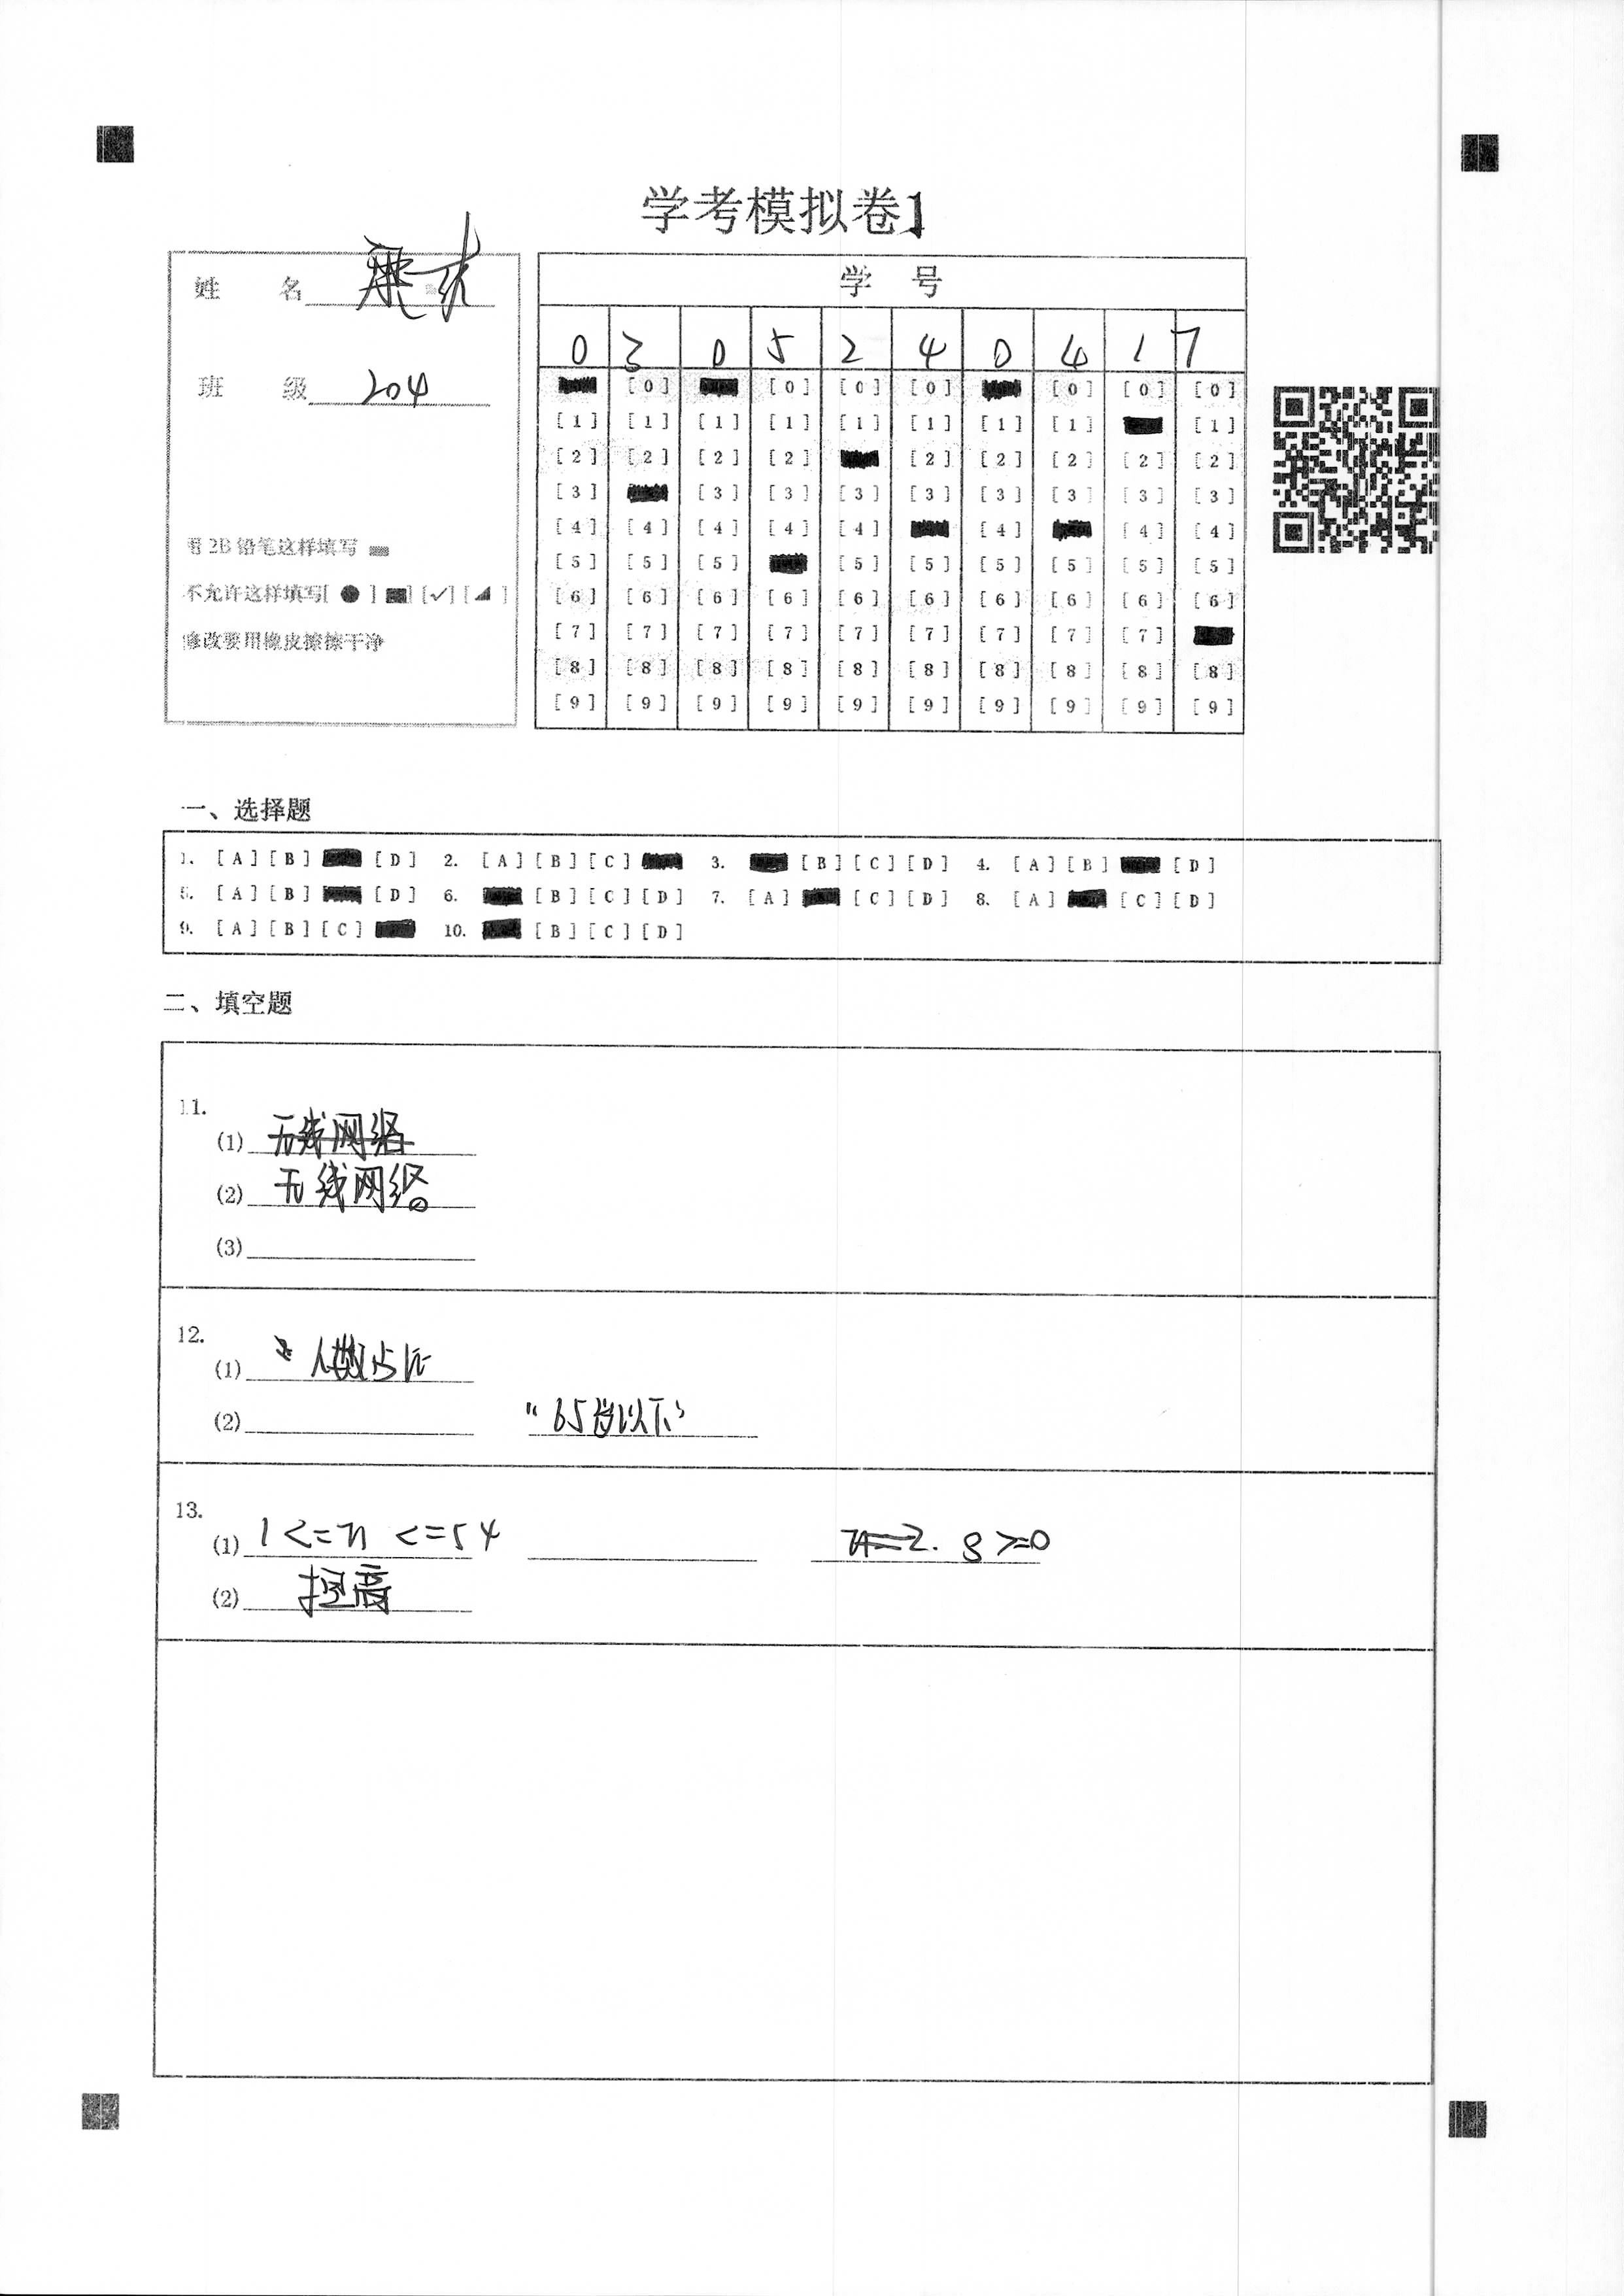 学考模拟卷1
姓 名
班 级 204
用2B铅笔这样填写
不允许这样填写[●] [■] [✓] [◢]
修改要用橡皮擦擦干净
学 号
0 3 0 5 2 4 0 4 1 7
[0] [0] [0] [0] [0] [0] [0]
[1] [1] [1] [1] [1] [1] [1] [1] [1]
[2] [2] [2] [2] [2] [2] [2] [2] [2]
[3] [3] [3] [3] [3] [3] [3] [3] [3]
[4] [4] [4] [4] [4] [4] [4] [4]
[5] [5] [5] [5] [5] [5] [5] [5] [5]
[6] [6] [6] [6] [6] [6] [6] [6] [6] [6]
[7] [7] [7] [7] [7] [7] [7] [7] [7]
[8] [8] [8] [8] [8] [8] [8] [8] [8] [8]
[9] [9] [9] [9] [9] [9] [9] [9] [9] [9]
一、选择题
1. [A] [B] [D] 2. [A] [B] [C] 3. [B] [C] [D] 4. [A] [B] [D]
5. [A] [B] [D] 6. [B] [C] [D] 7. [A] [C] [D] 8. [A] [C] [D]
9. [A] [B] [C] 10. [B] [C] [D]
二、填空题
11.
(1) 无线网络
(2) 无线网络
(3)
12.
(1) 人数占比
(2) "65岁以下"
13.
(1) 1<=n<=54 n=2. s>=0
(2)